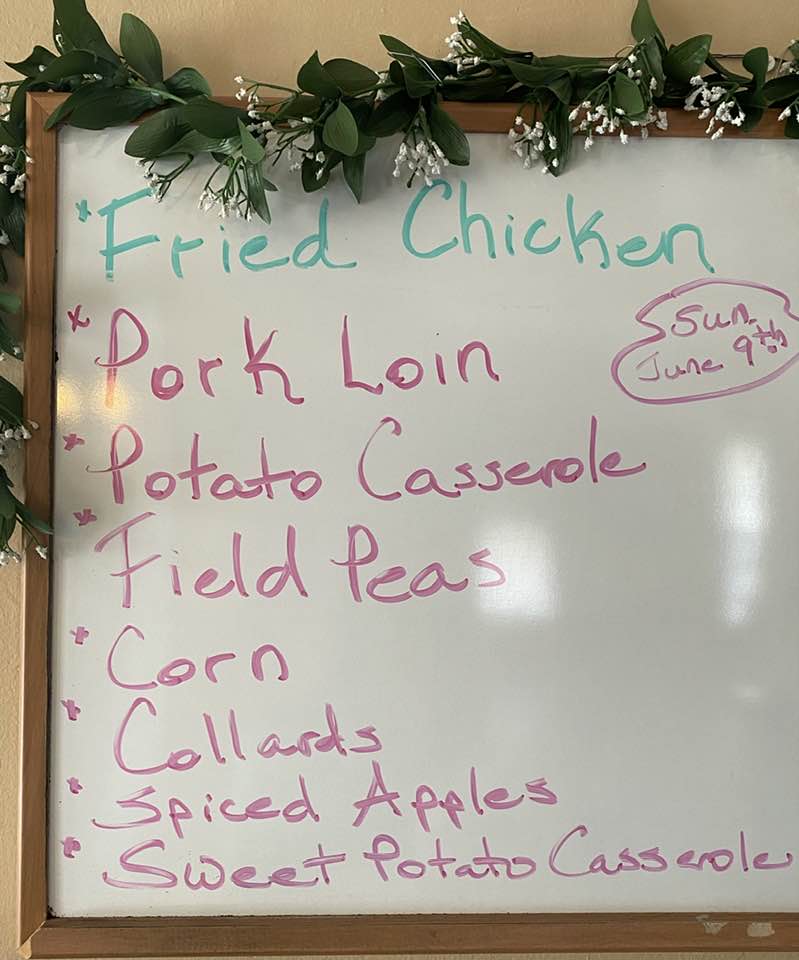 * Fried Chicken
* Pork Loin
Sun.
June 9th
* Potato Casserole
* Field Peas
* Corn
* Collards
* Spiced Apples
* Sweet Potato Casserole